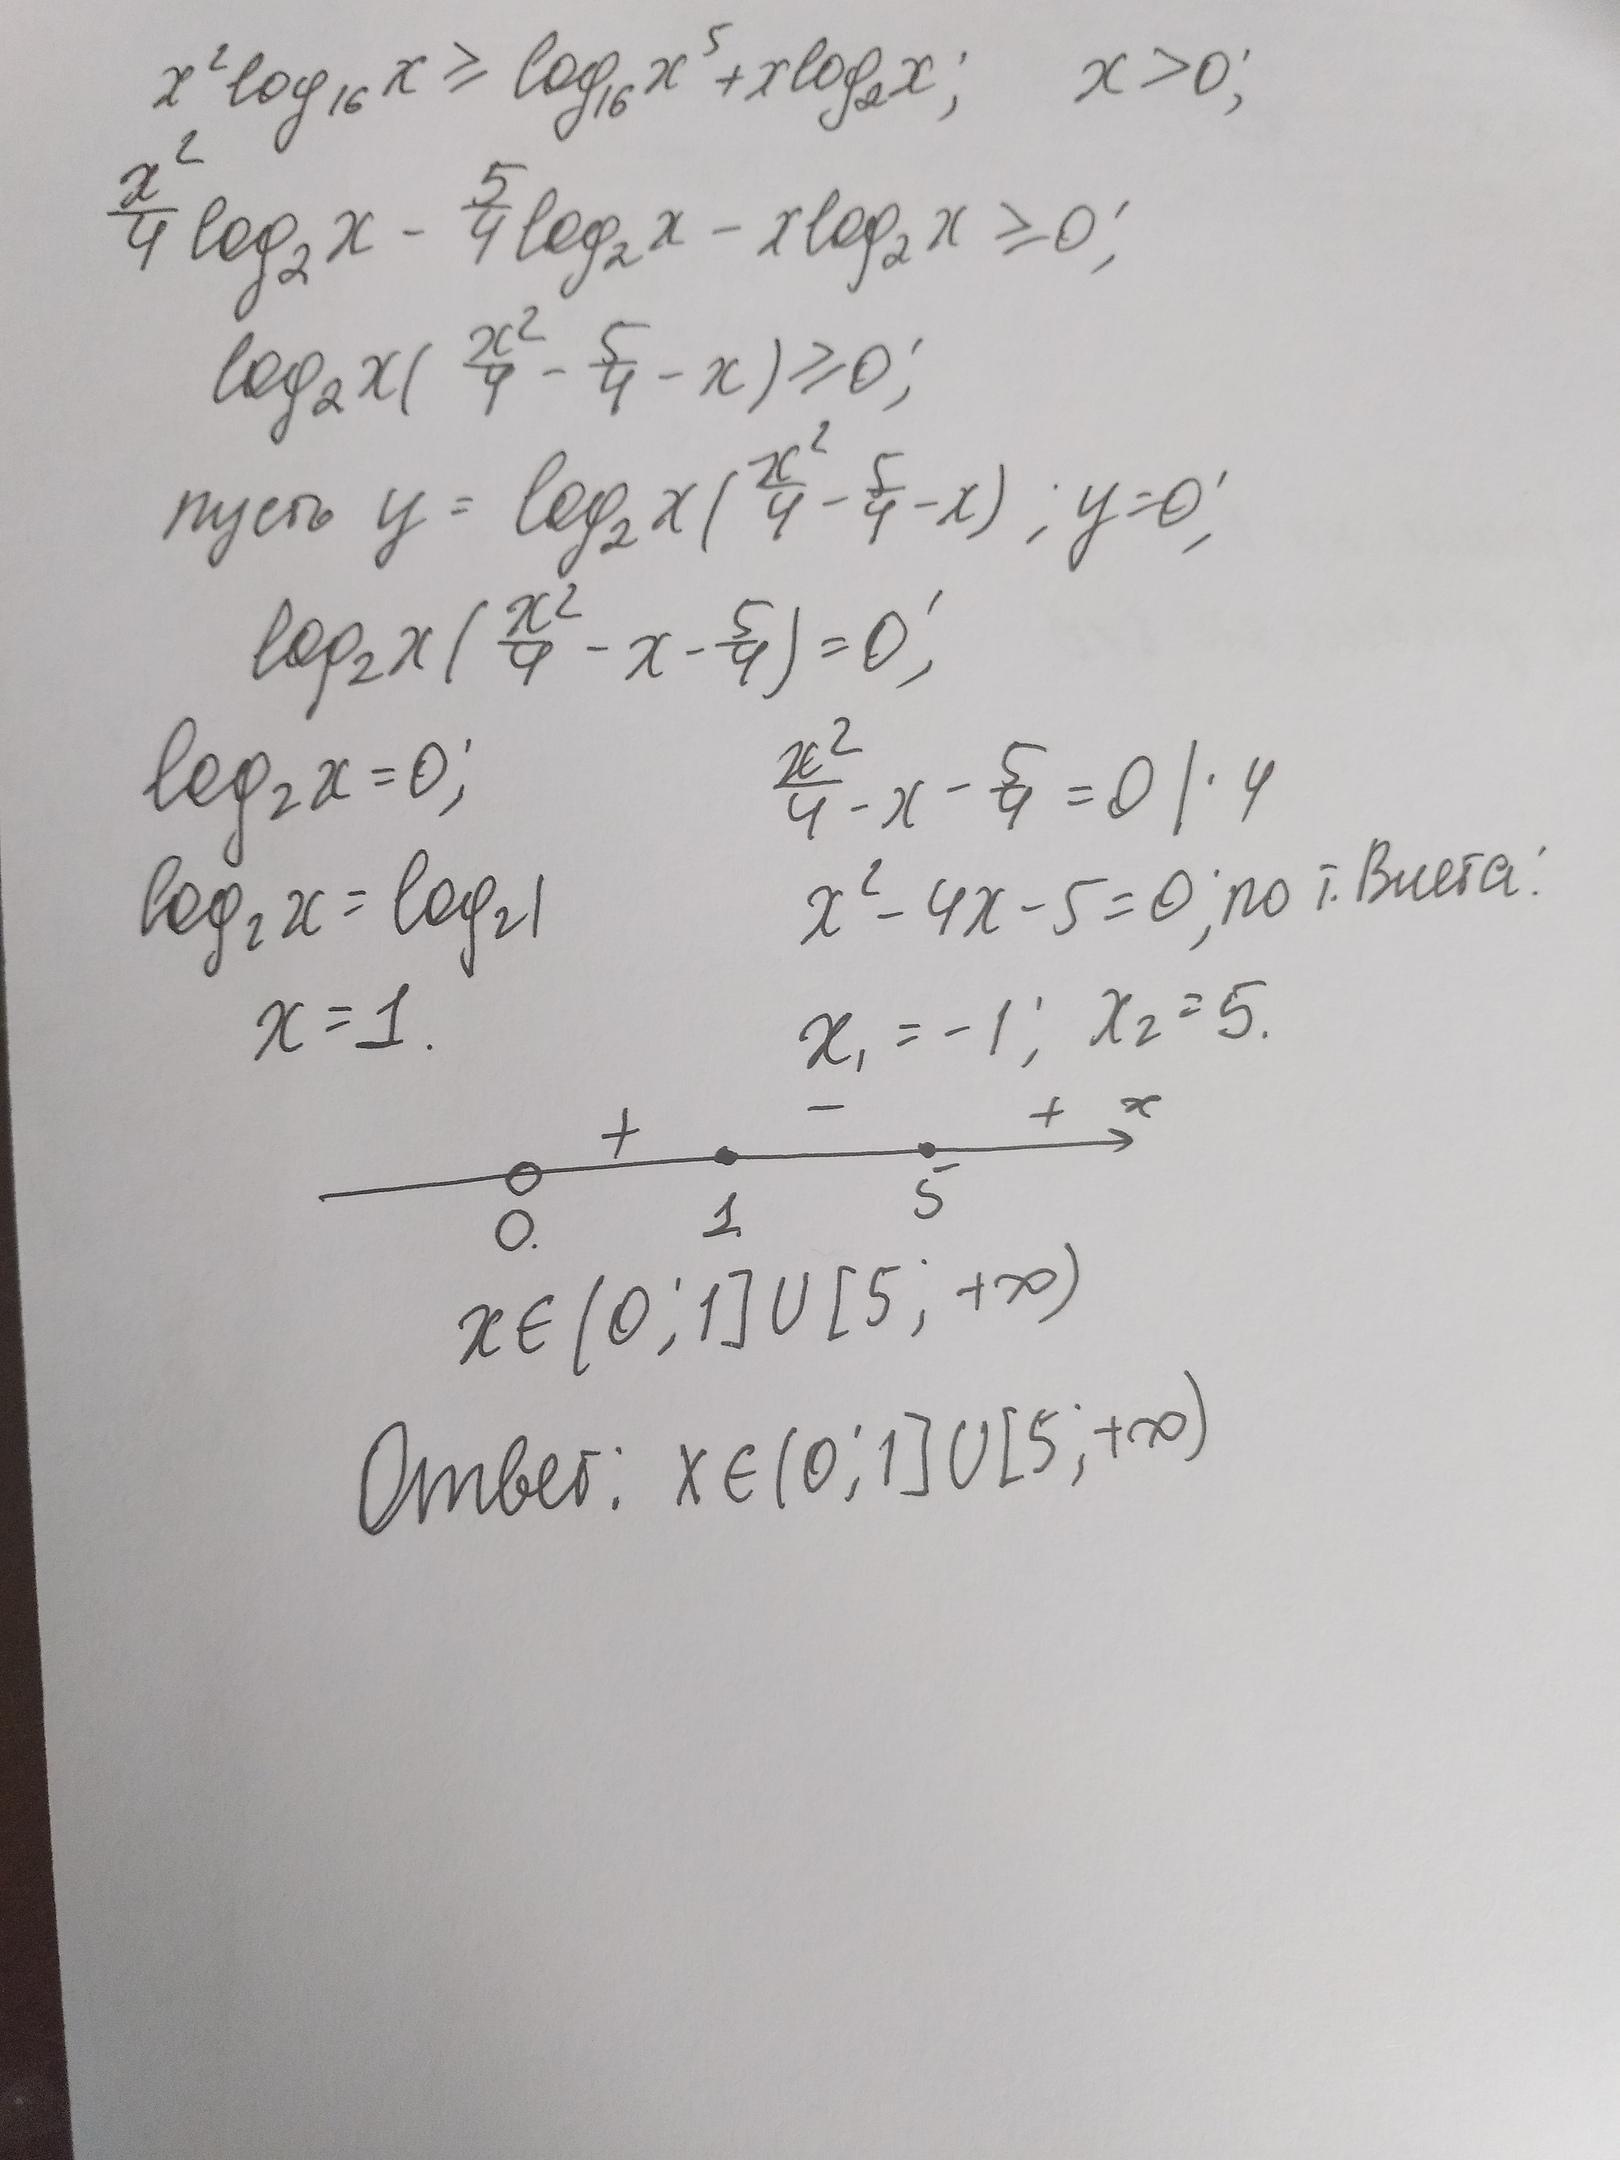 x² log₁₆ x ≥ log₁₆ x⁵ + x log₂ x; x > 0;
x²/4 log₂ x - 5/4 log₂ x - x log₂ x ≥ 0;
log₂ x ( x²/4 - 5/4 - x ) ≥ 0;
пусть y = log₂ x ( x²/4 - 5/4 - x ) ; y = 0;
log₂ x ( x²/4 - x - 5/4 ) = 0;
log₂ x = 0; x²/4 - x - 5/4 = 0 | · 4
log₂ x = log₂ 1 x² - 4x - 5 = 0; по т. Виета:
x = 1. x₁ = -1; x₂ = 5.
+ - + x
0. 1 5
x ∈ (0; 1] ∪ [5; +∞)
Ответ: x ∈ (0; 1] ∪ [5; +∞)